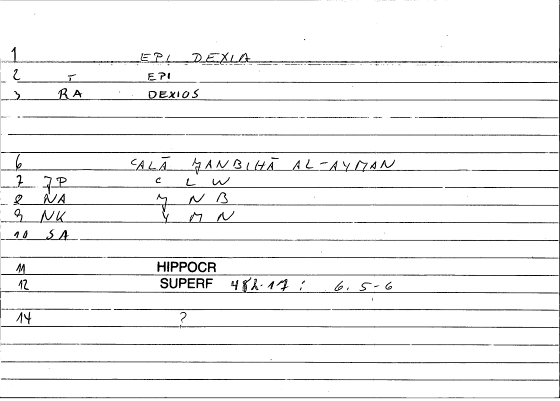 1 EPI DEXIA
2 T EPI
3 RA DEXIOS
6 CALĀ ǦANBIHĀ AL-AYMAN
7 JP C L W
8 NA Ǧ N B
9 NK Y M N
10 SA
11 HIPPOCR
12 SUPERF 482.17 : 6. 5-6
14 ?